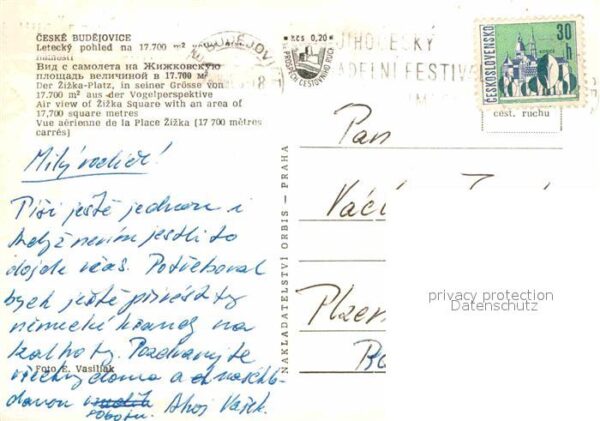 ČESKÉ BUDĚJOVICE
Letecký pohled na 17.700 m² náměstí
Вид с самолета на Жижковскую
площадь величиной в 17.700 м²
Der Žižka-Platz, in seiner Grösse von
17.700 m² aus der Vogelperspektive
Air view of Žižka Square with an area of
17,700 square metres
Vue aérienne de la Place Žižka (17 700 mètres
carrés)
Milý rodiče!
Píši ještě jednou i
když nevím jestli to
dojde včas. Potřeboval
bych ještě přivést ty
německé
kalhoty. Pozdravujte
všechny doma a
sobotu. Ahoj Vašek.
Foto E. Vasiliak
NAKLADATELSTVÍ ORBIS — PRAHA
Kčs 0,20
JIHOČESKÝ
ADELNÍ FESTIVA
ČESKOSLOVENSKO
30 h
cest. ruchu
Pan
Plzeň
privacy protection
Datenschutz